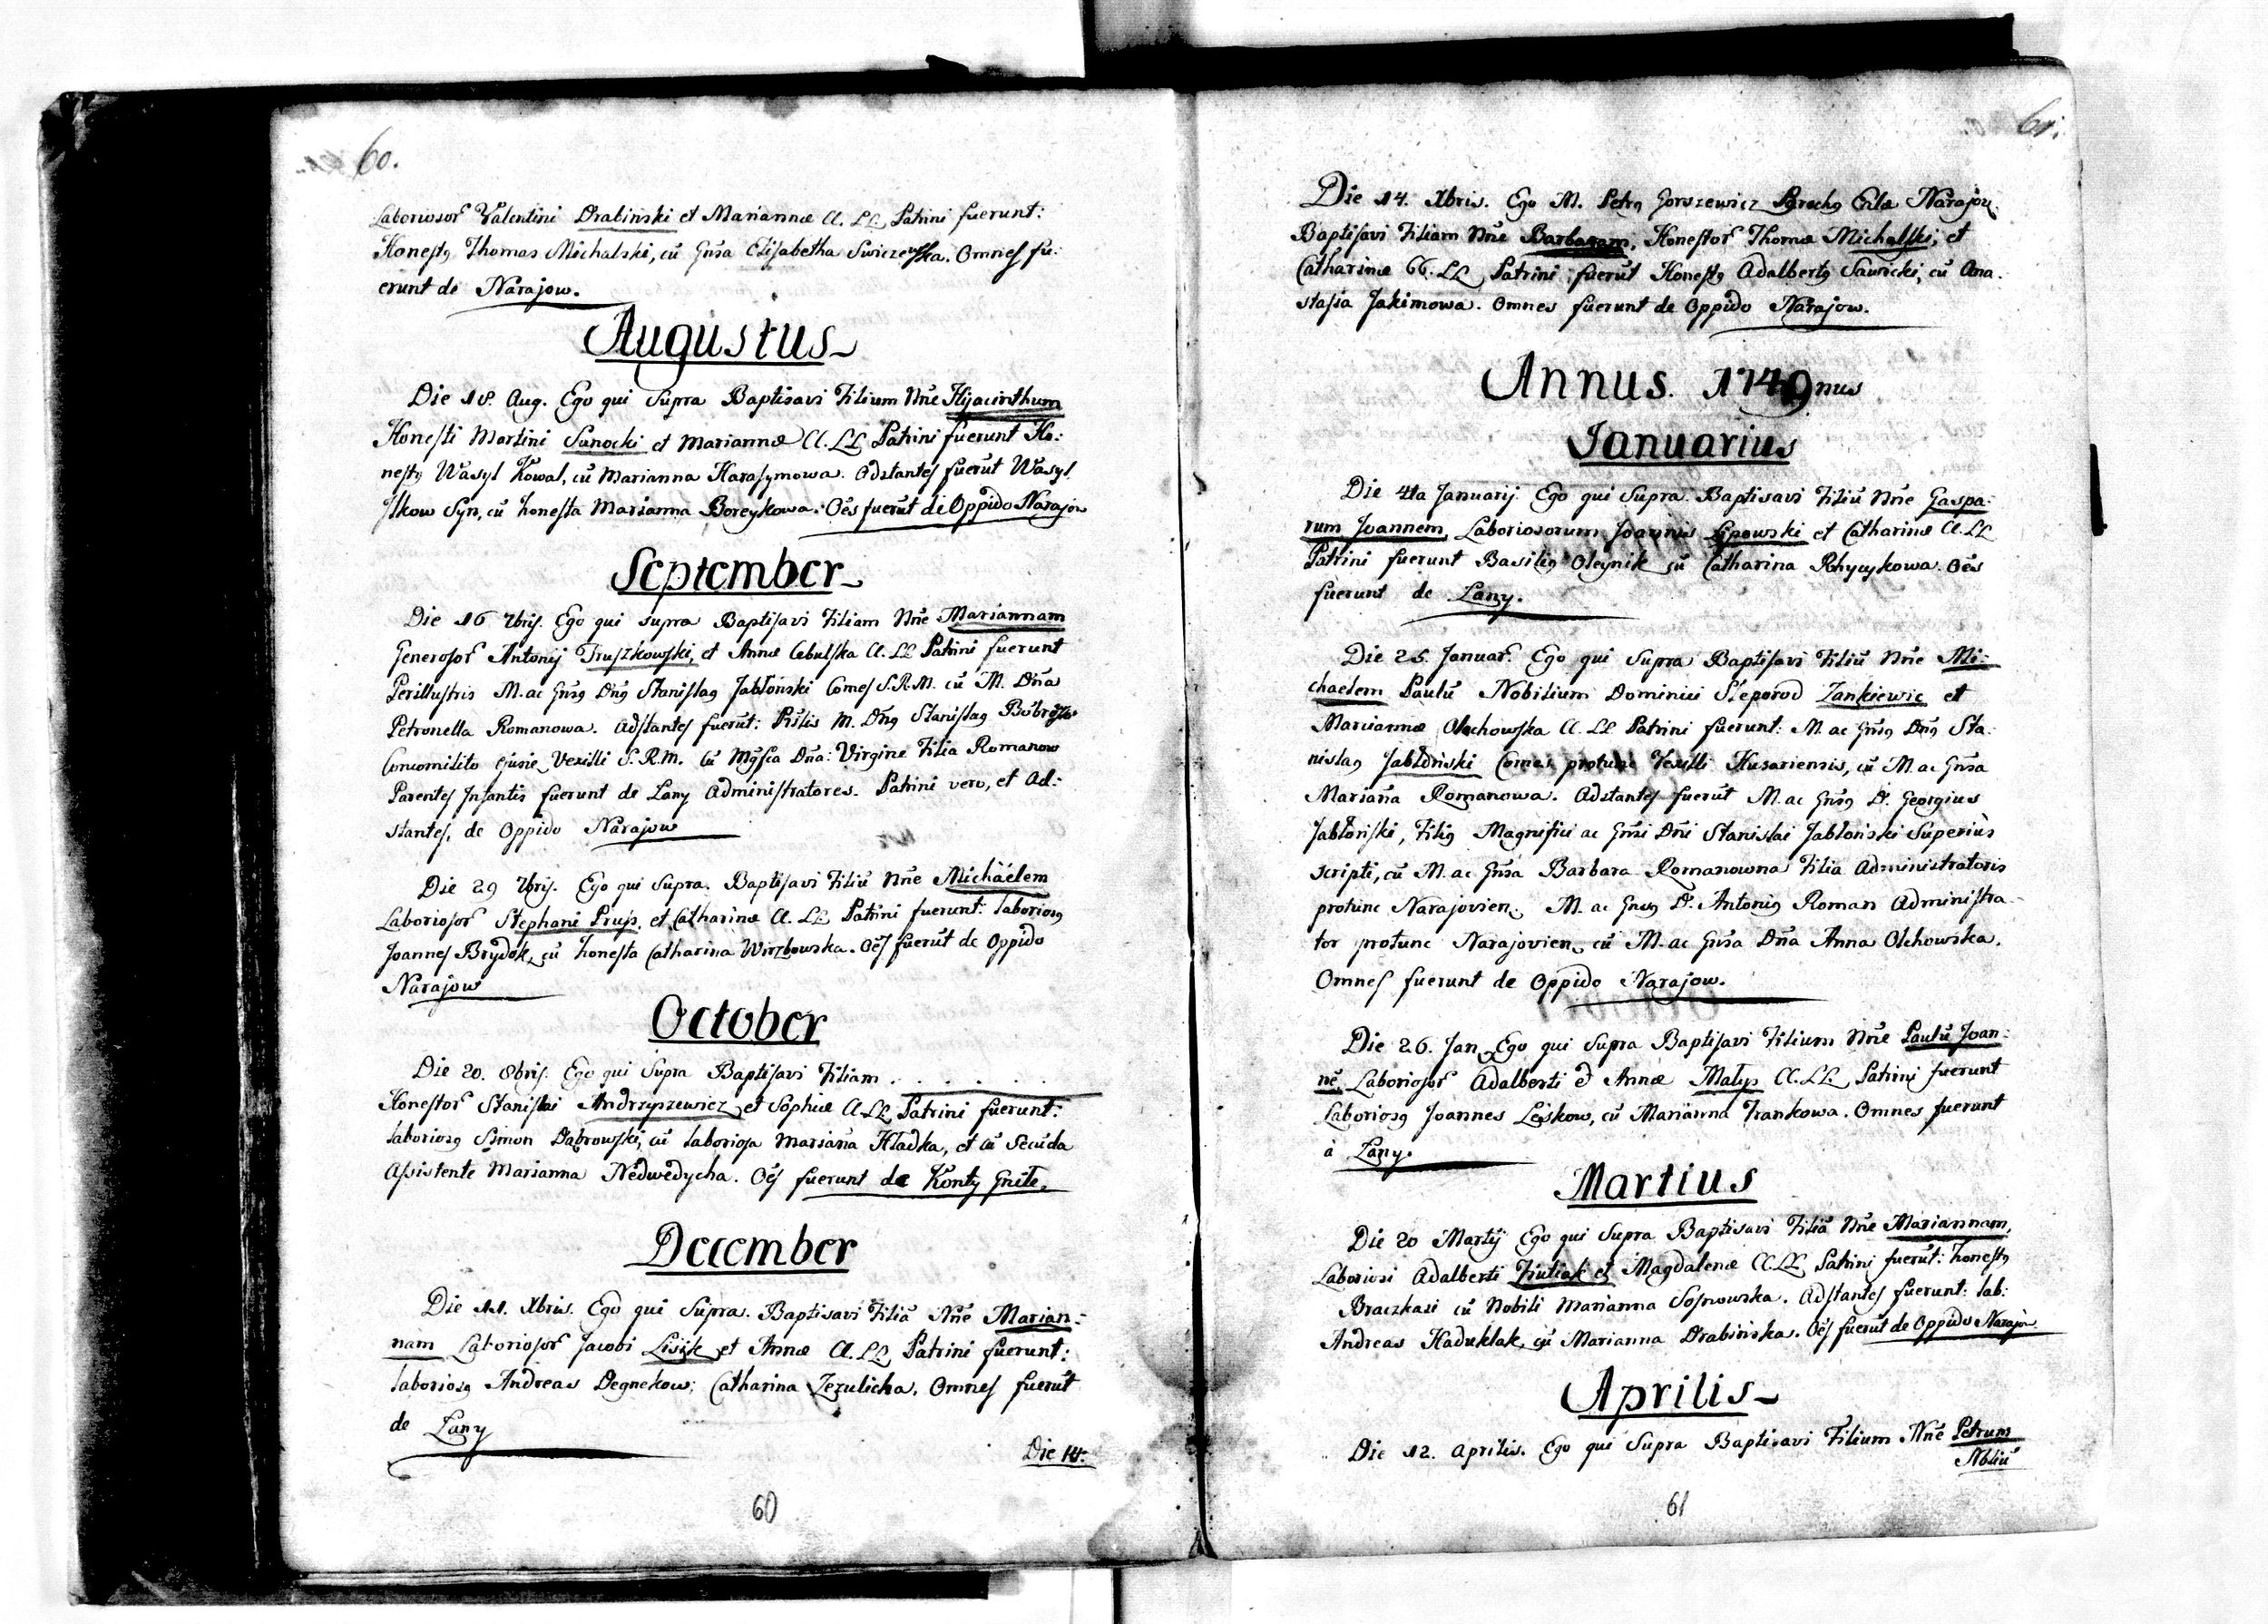 60.
Laboriosor Valentini Drabinski et Mariannæ CC. LL. Patrini fuerunt:
Honestq Thomas Michalski, cũ Gnsa Elisabetha Swiczewska. Omnes fu:
erunt de Narajow.
Augustus
Die 18. Aug. Ego qui Supra Baptisavi Filium Nñe Hijacinthum
Honesti Martini Sanocki et Mariannæ CC. LL Patrini fuerunt Ho:
nestq Wasyl Kowal, cũ Marianna Harasymowa. Adstantes fuerũt Wasyl
Ilkow Syn, cũ honesta Marianna Boreykowa. Oẽs fuerũt de Oppido Narajow
September
Die 16 7bris. Ego qui supra Baptisavi Filiam Nñe Mariannam
Generosor Antonij Truszkowski, et Annæ Cebulska CC. LL Patrini fuerunt
Perillustris M. ac Gnsq Dnq Stanislaq Jabłonski Comes S.R.M. cũ M. Dña
Petronella Romanowa. Adstantes fuerũt: M. Dnq Stanislaq
Concomilito Vexilli S.R.M. Cũ Dña: Virgine Filia Romanow
Parentes Infantis fuerunt de Łany Administratores. Patrini vero, et Ad:
stantes, de Oppido Narajow
Die 29 7bris. Ego qui Supra. Baptisavi Filiũ Nñe Michaëlem
Laboriosor Stephani Prus, et Catharinæ CC. LL Patrini fuerunt: laboriosq
Joannes Brydok, cũ honesta Catharina Wirzbowska. Oẽs fuerũt de Oppido
Narajow
October
Die 20. 8bris. Ego qui Supra Baptisavi Filiam . . . . . .
Honestor Stanislai Andrzyszewicz et Sophiæ CC. LL. Patrini fuerunt:
laboriosq Simon Dąbrowski, cũ laboriosa Mariaña Hładka, et cũ Secũda
Assistente Marianna Nedwedycha. Oẽs fuerunt de Konty Gniłe.
December
Die 11. Xbris. Ego qui Supra. Baptisavi Filiã Nñe Marian:
nam Laboriosor Jacobi Lisik et Annæ CC. LL. Patrini fuerunt:
laboriosq Andreas Degnekow; Catharina Zezulicha. Omnes fuerũt
de Łany
Die 14:
60
61.
Die 14. Xbris. Ego M. Petrq Gorszewicz Parochq Eccłæ Narajow
Baptisavi Filiam Nñe Barbaram, Honestor Thomæ Michalski, et
Catharinæ CC. LL Patrini fuerũt Honestq Adalbertq Sawicki, cũ Ana:
stasia Jakimowa. Omnes fuerunt de Oppido Narajow.
Annus. 1749nus
Ianuarius
Die 4ta Januarij Ego qui Supra. Baptisavi Filiũ Nñe Gaspa:
rum Joannem, Laboriosorum Joannis Lipowski et Catharinæ CC. LL
Patrini fuerunt Basiliq Oleynik cũ Catharina Rhycykowa. Oẽs
fuerunt de Łany.
Die 25. Januar. Ego qui Supra Baptisavi Filiũ Nñe Mi:
chaelem Paulũ Nobilium Dominici Steporod Zankiewic et
Mariannæ Olechowska CC. LL Patrini fuerunt: M. ac Gnsq Dnq Sta:
nislaq Jabłonski Comes protunc Vexilli Husariensis, cũ M. ac Gnsa
Mariaña Romanowa. Adstantes fuerũt M. ac Gnsq D. Georgius
Jabłonski, Filiq Magnifici ac Gnsi Dñi Stanislai Jabłonski Superiùs
scripti, cũ M. ac Gnsa Barbara Romanowna Filia Administratoris
protunc Narajovien. M. ac Gnsq D. Antoniq Roman Administra-
tor protunc Narajovien. cũ M. ac Gnsa Dña Anna Olchowska.
Omnes fuerunt de Oppido Narajow.
Die 26. Jan. Ego qui Supra Baptisavi Filium Nñe Paulũ Joan:
nẽ, Laboriosor Adalberti et Annæ Małys CC. LL. Patrini fuerunt
Laboriosq Joannes Leskow, cũ Marianna Frankowa. Omnes fuerunt
à Łany.
Martius
Die 20 Martij Ego qui Supra Baptisavi Filiã Nñe Mariannam,
Laboriosi Adalberti et Magdalenæ CC. LL Patrini fuerũt: honestq
Braczkasi cũ Nobili Marianna Sosnowska. Adstantes fuerunt: lab:
Andreas Haduklak, cũ Marianna Drabinska. Oẽs fuerũt de Oppido Narajo
Aprilis
Die 12. Aprilis. Ego qui Supra Baptisavi Filium Nñe Petrum
Nbliũ
61